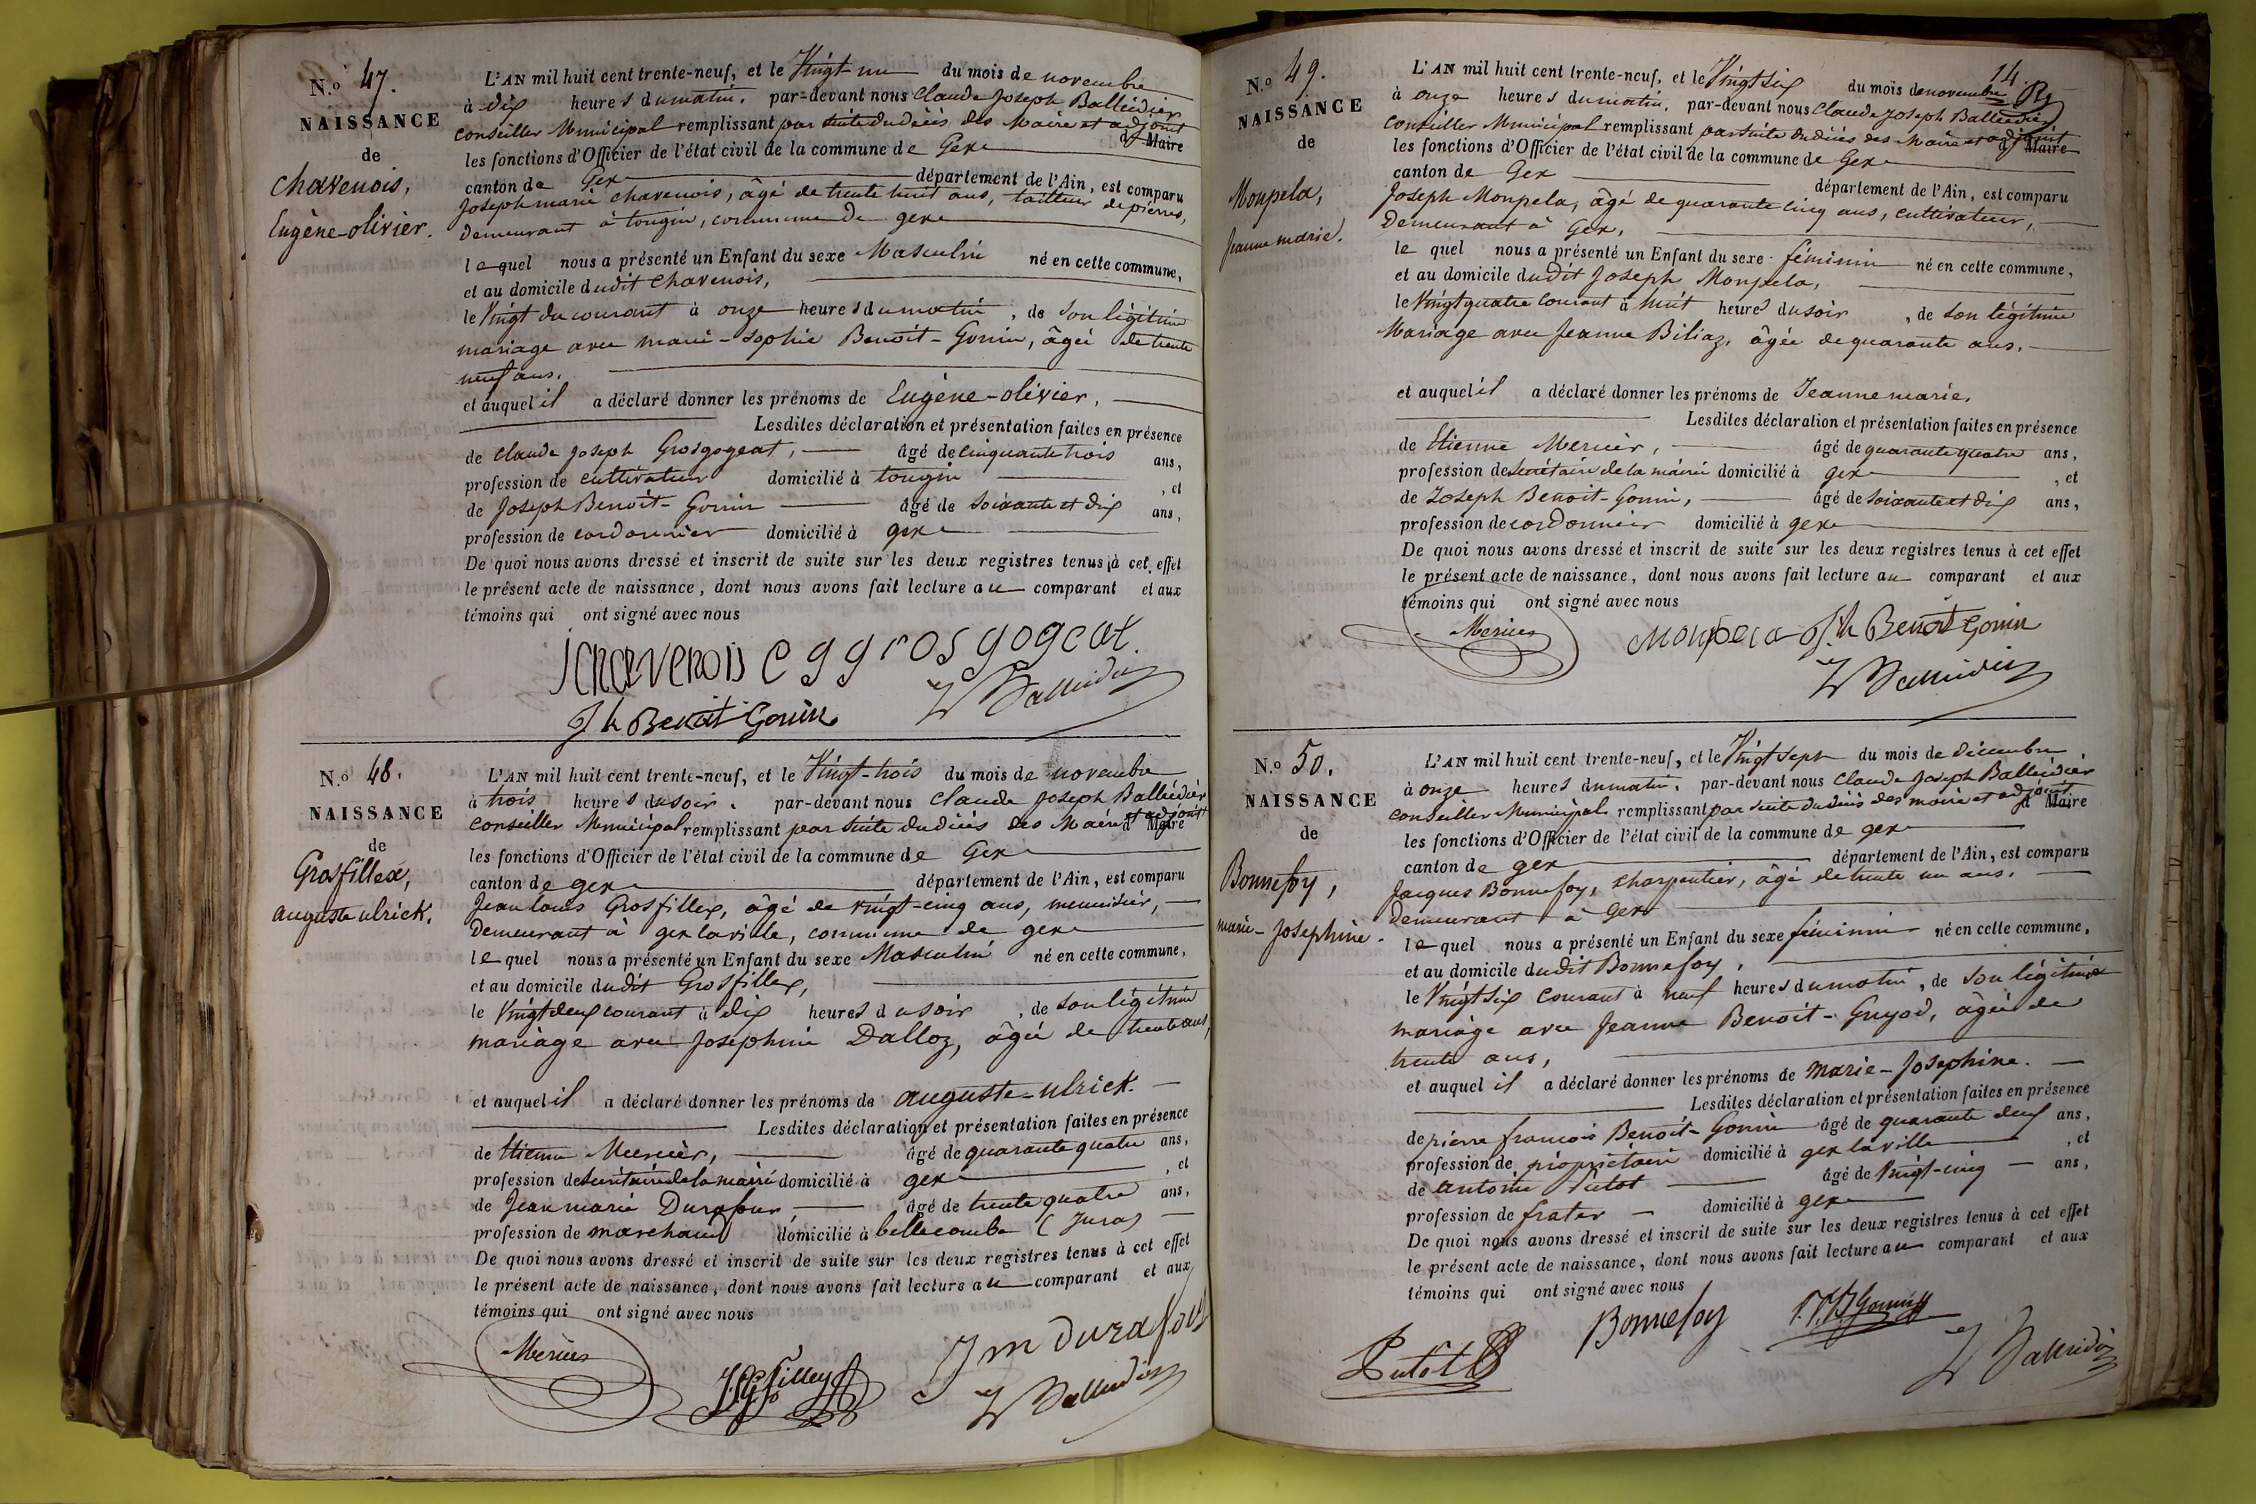 N.º 47.
NAISSANCE
de
Chavenois,
Eugène-olivier.
L'AN mil huit cent trente-neuf, et le Vingt-un du mois de novembre
à dix heures du matin. par-devant nous Claude Joseph Balleidier
Conseiller Municipal remplissant par suite du décès des Maire et adjoint d Maire
les fonctions d'Officier de l'état civil de la commune de Gex
canton de Gex département de l'Ain, est comparu
Joseph marie Chavenois, âgé de trente huit ans, tailleur de pierres,
demeurant à tougin, commune de gex
lequel nous a présenté un Enfant du sexe Masculin né en cette commune,
et au domicile dudit Chavenois,
le Vingt du courant à onze heures du matin, de son légitime
mariage avec marie-Sophie Benoit-Gonin, âgée de trente
neuf ans.
et auquel il a déclaré donner les prénoms de Eugène-olivier,
Lesdites déclaration et présentation faites en présence
de Claude Joseph Grosgogeat, âgé de cinquante trois ans,
profession de cultivateur domicilié à tougin , et
de Joseph Benoit-Gonin âgé de soixante et dix ans,
profession de cordonnier domicilié à gex
De quoi nous avons dressé et inscrit de suite sur les deux registres tenus à cet effet
le présent acte de naissance, dont nous avons fait lecture au comparant et aux
témoins qui ont signé avec nous
J chavenois c g grosgogeat.
Jh Benoit Gonin Balleidier
N.º 48.
NAISSANCE
de
Grosfillex,
auguste ulrick.
L'AN mil huit cent trente-neuf, et le Vingt-trois du mois de novembre
à trois heures du soir. par-devant nous Claude Joseph Balleidier
Conseiller Municipal remplissant par suite du décès des Maire et adjoint d Maire
les fonctions d'Officier de l'état civil de la commune de Gex
canton de gex département de l'Ain, est comparu
Jean louis Grosfillex, âgé de vingt-cinq ans, menuisier,
demeurant à gex la ville, commune de gex
lequel nous a présenté un Enfant du sexe Masculin né en cette commune,
et au domicile dudit Grosfillex,
le Vingt deux courant à dix heures du soir, de son légitime
mariage avec Josephine Dalloz, âgée de trente ans,
et auquel il a déclaré donner les prénoms de auguste-ulrick.
Lesdites déclaration et présentation faites en présence
de Etienne Mercier, âgé de quarante quatre ans,
profession de secrétaire de la mairie domicilié à gex , et
de Jean marie Durafour, âgé de trente quatre ans,
profession de marchand domicilié à bellecombe (Jura)
De quoi nous avons dressé et inscrit de suite sur les deux registres tenus à cet effet
le présent acte de naissance, dont nous avons fait lecture au comparant et aux
témoins qui ont signé avec nous
Mercier Jm durafour
Balleidier
14
N.º 49.
NAISSANCE
de
Monpela,
Jeanne marie.
L'AN mil huit cent trente-neuf, et le Vingt six du mois de novembre
à onze heures du matin. par-devant nous Claude Joseph Balleidier
Conseiller Municipal remplissant par suite du décès des Maire et adjoint d Maire
les fonctions d'Officier de l'état civil de la commune de Gex
canton de Gex département de l'Ain, est comparu
Joseph Monpela, âgé de quarante cinq ans, cultivateur,
Demeurant à Gex,
lequel nous a présenté un Enfant du sexe féminin né en cette commune,
et au domicile dudit Joseph Monpela,
le Vingt quatre courant à huit heures du soir, de son légitime
Mariage avec Jeanne Biliaz, âgée de quarante ans.
et auquel il a déclaré donner les prénoms de Jeanne marie.
Lesdites déclaration et présentation faites en présence
de Etienne Mercier, âgé de quarante quatre ans,
profession de secrétaire de la mairie domicilié à gex , et
de Joseph Benoit-Gonin, âgé de soixante et dix ans,
profession de cordonnier domicilié à gex
De quoi nous avons dressé et inscrit de suite sur les deux registres tenus à cet effet
le présent acte de naissance, dont nous avons fait lecture au comparant et aux
témoins qui ont signé avec nous
Mercier Monpela Jh Benoit Gonin
Balleidier
N.º 50.
NAISSANCE
de
Bonnefoy,
marie-Josephine.
L'AN mil huit cent trente-neuf, et le Vingt sept du mois de décembre
à onze heures du matin. par-devant nous Claude Joseph Balleidier
conseiller Municipal remplissant par suite du décès des maire et adjoint d Maire
les fonctions d'Officier de l'état civil de la commune de gex
canton de gex département de l'Ain, est comparu
Jacques Bonnefoy, charpentier, âgé de trente un ans.
Demeurant à Gex
lequel nous a présenté un Enfant du sexe féminin né en cette commune,
et au domicile dudit Bonnefoy,
le Vingt six courant à neuf heures du matin, de son légitime
mariage avec Jeanne Benoit-Guyod, âgée de
trente ans,
et auquel il a déclaré donner les prénoms de marie-Josephine.
Lesdites déclaration et présentation faites en présence
de pierre françois Benoit-Gonin âgé de quarante deux ans,
profession de propriétaire domicilié à gex la ville , et
de antoine Putot âgé de Vingt-cinq ans,
profession de frater domicilié à gex
De quoi nous avons dressé et inscrit de suite sur les deux registres tenus à cet effet
le présent acte de naissance, dont nous avons fait lecture au comparant et aux
témoins qui ont signé avec nous
Putot Bonnefoy
Balleidier